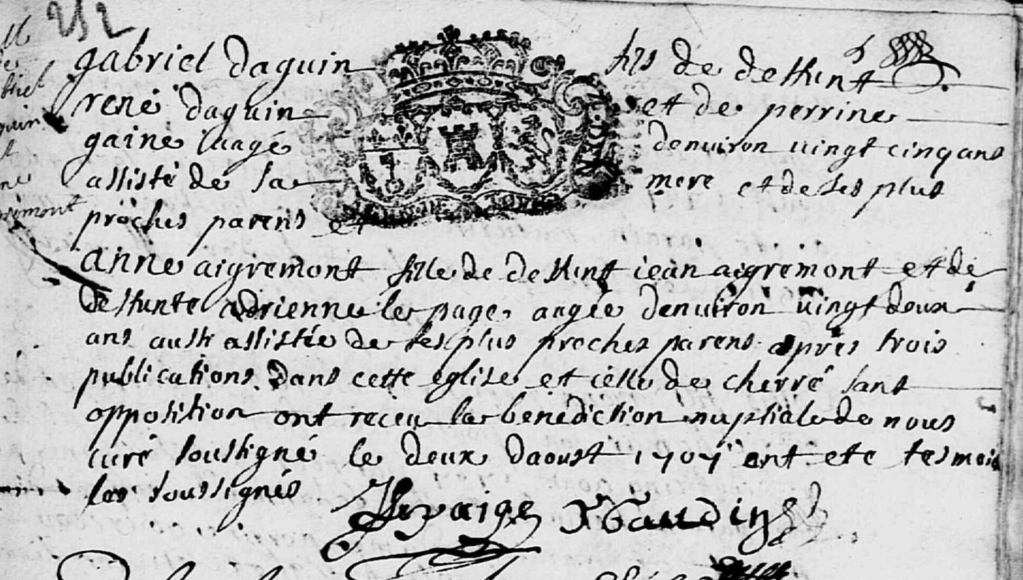 252
gabriel daguin fils de deffunt
rené daguin et de perrine
gaine luagé denuiron uingt cinq ans
assisté de sa mere et de ses plus
proches parens et
anne aigremont fille de deffunt iean aigremont et de
deffunte adrienne le page aagée denuiron uingt deux
ans aussi assistée de ses plus proches parens apres trois
publications dans cette eglise et celle de cherré sans
opposition ont receu la benediction nuptiale de nous
curé soussigné le deux daoust 1707 ont ete tesmoins
les soussignés